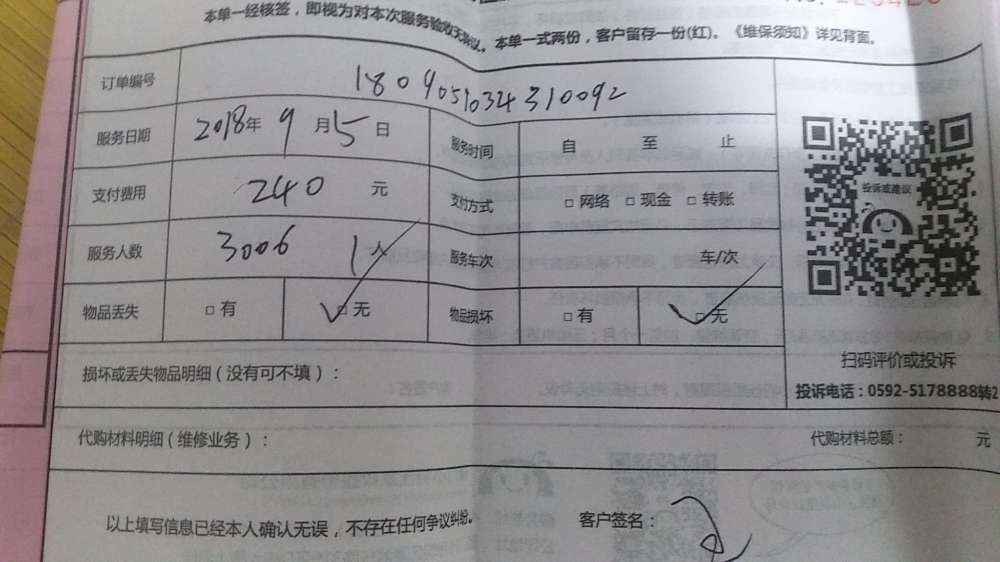 本单一经核签，即视为对本次服务验收无异议。本单一式两份，客户留存一份(红)。《维保须知》详见背面。
订单编号 1809051034310092
服务日期 2018年 9 月 5 日 服务时间 自 至 止
支付费用 240 元 支付方式 □ 网络 □ 现金 □ 转账
服务人数 3006 1人 服务车次 车/次
物品丢失 □ 有 □ 无 物品损坏 □ 有 □ 无
投诉或建议
扫码评价或投诉
投诉电话：0592-5178888转2
损坏或丢失物品明细（没有可不填）：
代购材料明细（维修业务）： 代购材料总额： 元
以上填写信息已经本人确认无误，不存在任何争议纠纷。 客户签名：